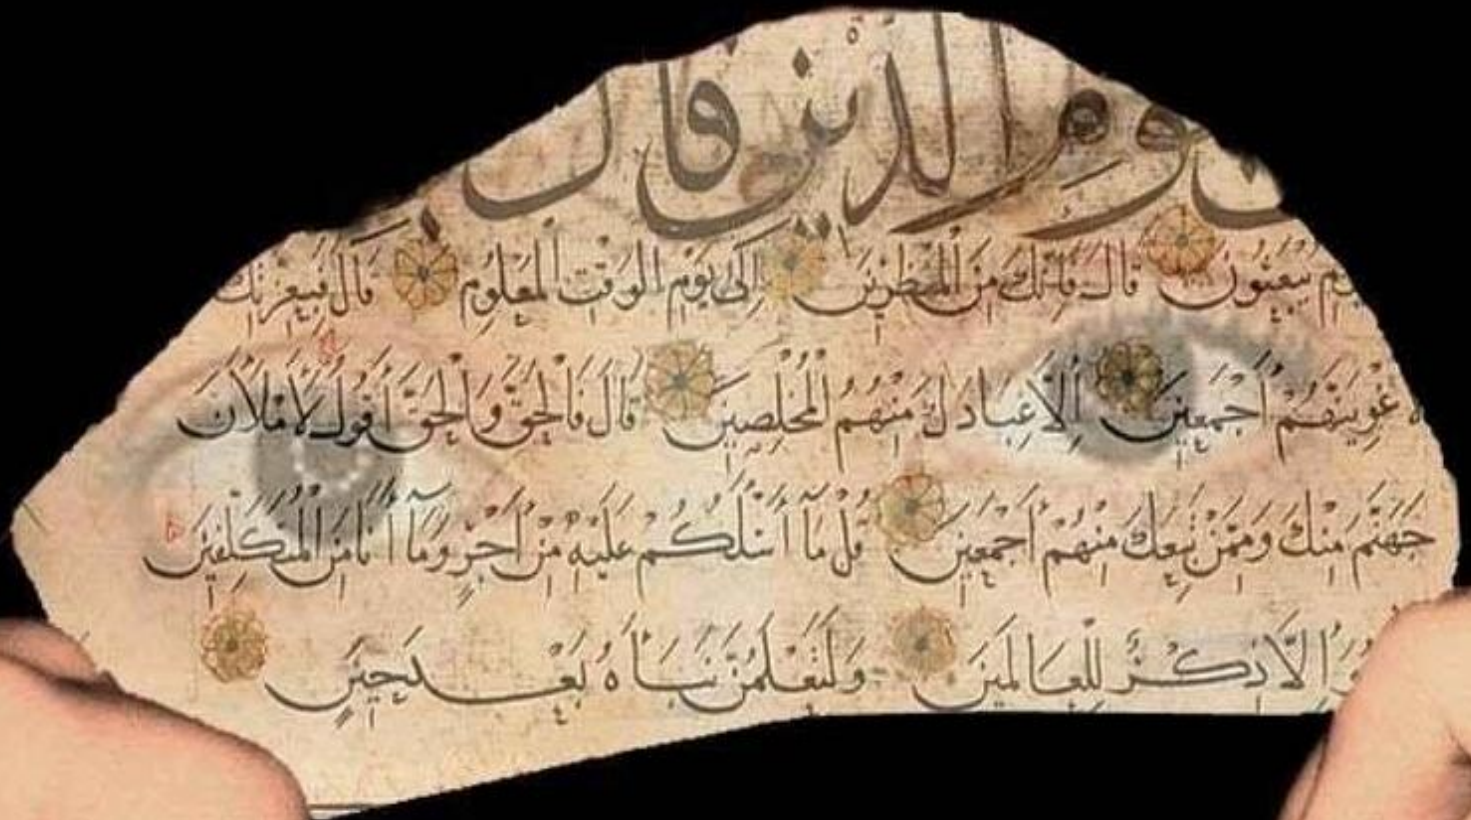 يوم الدين قال
يبعثون قال فإنك من المنظرين إلى يوم الوقت المعلوم قال فبعزتك
لأغوينهم أجمعين إلا عبادك منهم المخلصين قال فالحق والحق أقول لأملأن
جهنم منك وممن تبعك منهم أجمعين قل ما أسئلكم عليه من أجر وما أنا من المتكلفين
هو إلا ذكر للعالمين ولتعلمن نبأه بعد حين